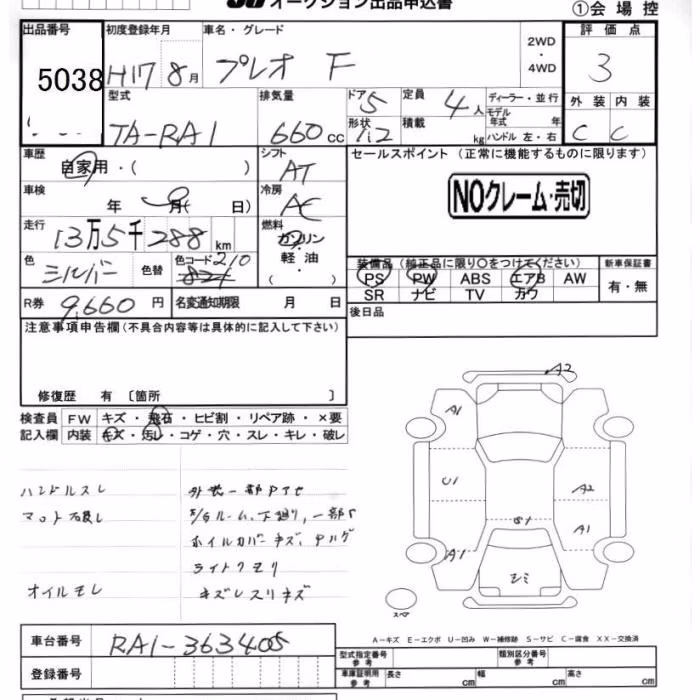 オークション出品申込書
①会場控
出品番号 初度登録年月 車名・グレード 2WD・4WD 評価点
5038 H17 8月 プレオ F 3
型式 排気量 ドア 5 定員 4人 ディーラー・並行 外装 内装
TA-RA1 660cc 形状 積載 kg モデル年式 年 ハンドル 左・右 C C
車歴 自家用・( ) シフト AT セールスポイント (正常に機能するものに限ります)
車検 年 月( 日) 冷房 AC NOクレーム・売切
走行 13万5千288km 燃料 ガソリン 軽油・( )
色 シルバー 色替 色コード 210 装備品 (純正品に限り○をつけてください) 新車保証書
PS PW ABS エアB AW 有・無
SR ナビ TV カワ
R券 9,660円 名変通知期限 月 日 後日品
注意事項申告欄 (不具合内容等は具体的に記入して下さい)
修復歴 有 〔箇所 〕
検査員 FW キズ・飛石・ヒビ割・リペア跡・×要
記入欄 内装 キズ・汚レ・コゲ・穴・スレ・キレ・破レ
ハンドルスレ
オイルモレ
ライトクモリ
A2
A1
U1
A2
A1
A1
スペア
A-キズ E-エクボ U-凹み W-補修跡 S-サビ C-腐食 XX-交換済
車台番号 RA1-363405
登録番号
型式指定番号 参考 類別区分番号 参考
車庫証明用 参考 長さ cm 幅 cm 高さ cm